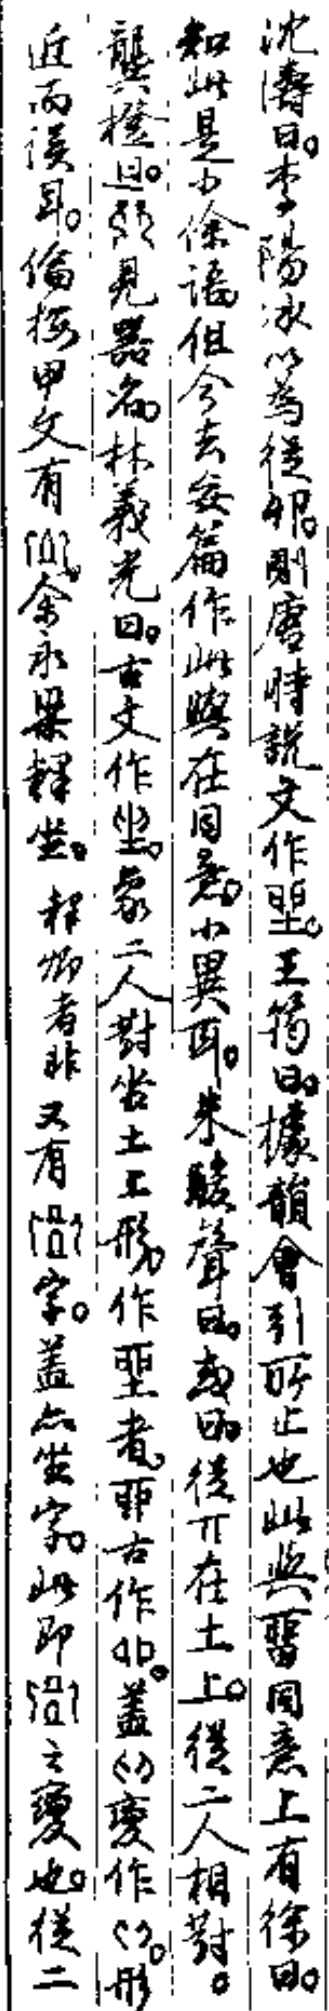 沈濤曰。李陽冰以為從卯。則唐時說文作聖。王筠曰。據韻會引所止也此與畱同意上有徐曰。
知此是小徐語但今去妄篇作此與在同意。小異耳。朱駿聲曰。或曰。從丌在土上。從二人相對。
龔橙曰。見器名。林義光曰。古文作坐。象二人對坐土上形。作者。古作卯。蓋變作。形
近而誤耳。倫按甲文有。余永梁釋坐。釋卯者非又有字。蓋亦坐字。此即之變也。從二